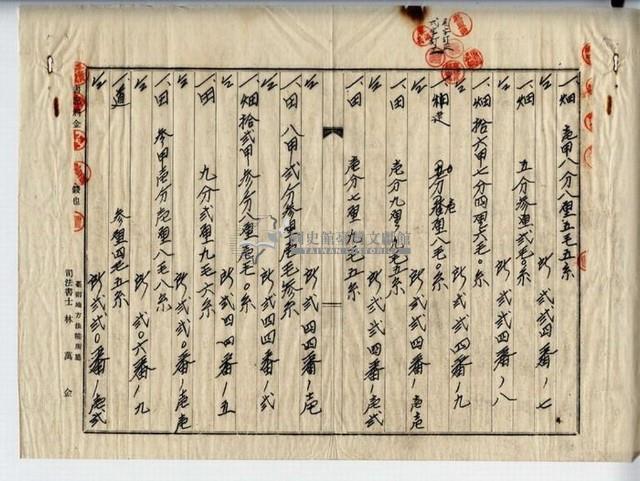 一、畑 壱甲八分八厘五毛五糸
仝 所弐弐四番ノ七
一、畑 五分参厘弐毛〇糸
仝 所弐弐四番ノ八
一、畑 拾六甲七分四厘六毛〇糸
仝 所弐弐四番ノ九
一、畑 分 厘八毛〇糸
仝 所弐弐四番ノ壱壱
一、田 壱分九厘 毛五糸
仝 所弐弐四番ノ壱弐
一、田 壱分七厘九毛五糸
仝 所弐弐四四番ノ壱
一、田 八甲弐分参厘壱毛参糸
仝 所弐弐四四番ノ弐
一、畑 拾弐甲参分八厘壱毛〇糸
仝 所弐弐四四番ノ五
一、田 九分弐厘九毛六糸
仝 所弐弐〇番ノ壱壱
一、田 参甲壱分壱厘八毛八糸
仝 所弐〇六番ノ九
一、道 参厘四毛五糸
仝 所弐弐〇番ノ壱弐
料金 錢也
地方法院所屬
司法書士 林萬金
國史館臺灣文獻館
TAIWAN HISTORICA